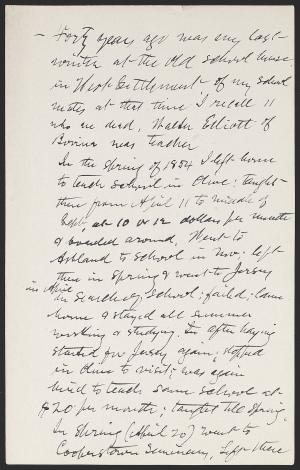 — Forty years ago was my last
winter at the old school house
in West Settlement. Of my school
mates at that time I recall 11
who are dead, Walter Elliott of
Bovina was teacher
In the spring of 1854 I left home
to teach school in Olive; taught
there from April 11 to middle of
Sept, at 10 or 12 dollars per month
& boarded around. Went to
Ashland to school in Nov; left
there in Spring & went to Jersey
in April
in search of school; failed; came
home & stayed all summer
working & studying. In after haying
started for Jersey again; stopped
in Olive to visit; was again
hired to teach same school at
$20 per month; taught till Spring.
In Spring (April 20) went to
Cooperstown Seminary, left there